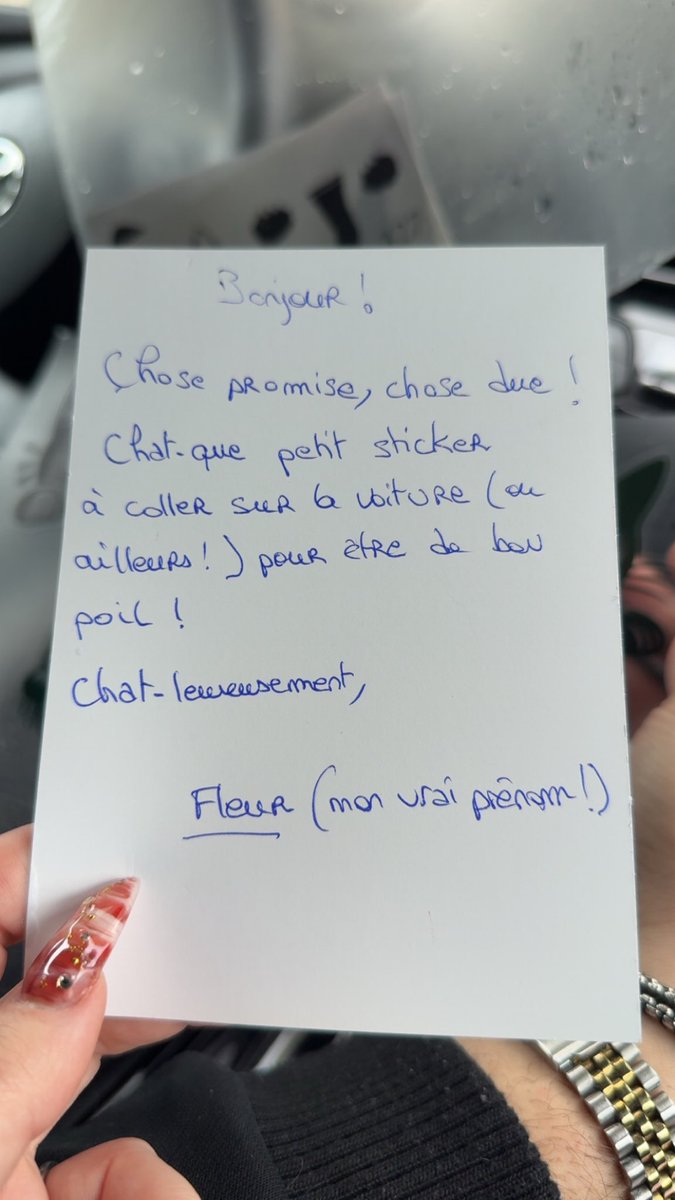 Bonjour !
Chose promise, chose due !
Chat-que petit sticker
à coller sur la voiture (ou
ailleurs !) pour être de bon
poil !
Chat-leureusement,
Fleur (mon vrai prénom !)